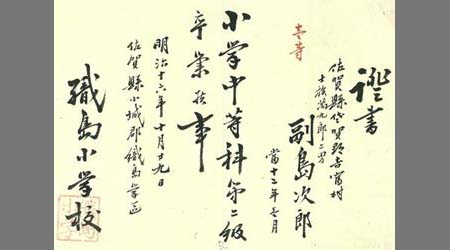 證書
佐賀縣佐賀郡古賀村
士族萬九郎二男
副島次郎
當十二年壱月
壱等
小学中等科第二級
卒業候事
明治十六年十月廿九日
佐賀縣小城郡織島学区
織島小学校